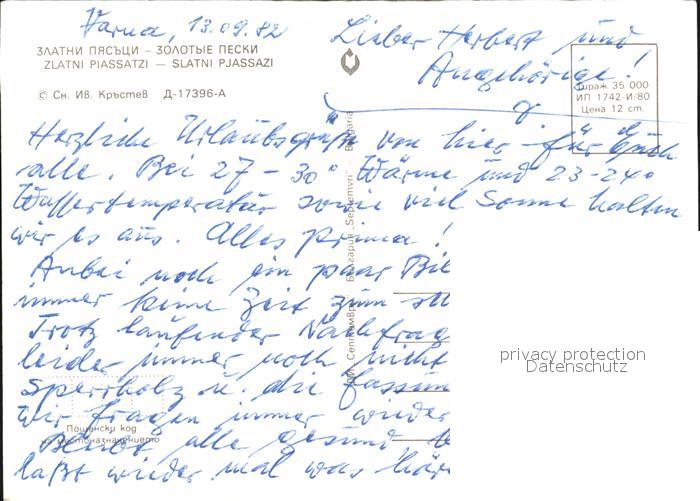 Varna, 13.09.82
Lieber Herbert und
Angehörige!
ЗЛАТНИ ПЯСЪЦИ – ЗОЛОТЫЕ ПЕСКИ
ZLATNI PIASSATZI — SLATNI PJASSAZI
© Сн. Ив. Кръстев Д-17396-А
Тираж 35 000
ИП 1742-И/80
Цена 12 ст.
Herzliche Urlaubsgrüße von hier für Euch
alle. Bei 27 - 30° Wärme und 23-24°
Wassertemperatur sowie viel Sonne halten
wir es aus. Alles prima!
Anbei noch ein paar Bil
immer keine Zeit zum
Trotz laufender Nachfrag
leider immer noch nicht
Sperrholz u. die Fassun
wir fragen immer wieder
Bleibt alle gesund
laßt wieder mal was hör
Пощенски код
на местоназначението
ДПИ „Септември“ България „Septemvri“ Bulgaria
privacy protection
Datenschutz